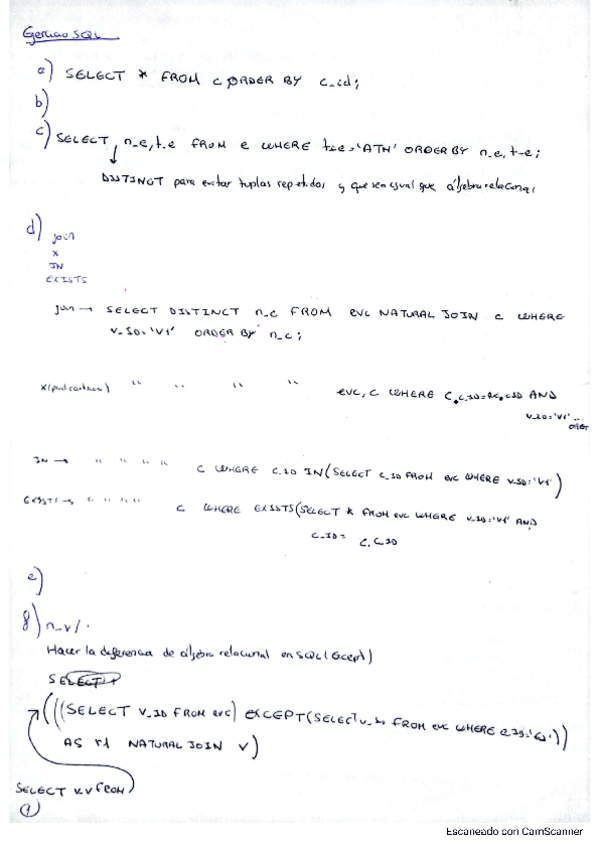 Ejercicio SQL
a) SELECT * FROM c ORDER BY c_id;
b)
c) SELECT n_e, t_e FROM e WHERE t_e='ATH' ORDER BY n_e, t_e;
DISTINCT para evitar tuplas repetidas y que sea igual que álgebra relacional
d) join
x
IN
EXISTS
join → SELECT DISTINCT n_c FROM evc NATURAL JOIN c WHERE
v_ID='V1' ORDER BY n_c;
x(prod cartesiano) " " " " evc, c WHERE c.c_ID= AND
v_ID='V1' ...
IN → " " " " c WHERE c_ID IN(SELECT c_ID FROM evc WHERE v_ID='V1')
EXISTS → " " " " c WHERE EXISTS(SELECT * FROM evc WHERE v_ID='V1' AND
c_ID= c.c_ID
e)
g) n_v/.
Hacer la diferencia de álgebra relacional en SQL (Except)
SELECT
(((SELECT v_ID FROM evc) EXCEPT(SELECT v_ID FROM evc WHERE
AS r1 NATURAL JOIN v)
SELECT v.v FROM
(1)
Escaneado con CamScanner